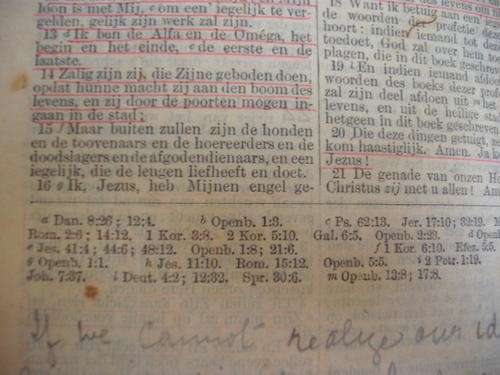 loon is met Mij, o om een iegelijk te ver-
gelden, gelijk zijn werk zal zijn.
13 d Ik ben de Alfa en de Oméga, het
begin en het einde, e de eerste en de
laatste.
14 Zalig zijn zij, die Zijne geboden doen,
opdat hunne macht zij aan den boom des
levens, en zij door de poorten mogen in-
gaan in de stad;
15 f Maar buiten zullen zijn de honden
en de toovenaars en de hoereerders en de
doodslagers en de afgodendienaars, en een
iegelijk, die de leugen liefheeft en doet.
16 g Ik, Jezus, heb Mijnen engel ge-
18 Want ik betuig aan een
de woorden der profetie deze
hoort: indien iemand tot de
toedoet, God zal over hem to
plagen, die in dit boek geschre
19 l En indien iemand afdoet
woorden des boeks dezer profe
zal zijn deel afdoen uit m het
levens, en uit de heilige stad
hetgeen in dit boek geschreven
20 Die deze dingen getuigt, ze
kom haastiglijk. Amen. Ja
Jezus!
21 De genade van onzen He
Christus zij met u allen! Am
a Dan. 8:26; 12:4. b Openb. 1:3. c Ps. 62:13. Jer. 17:10; 32:19.
Rom. 2:6; 14:12. 1 Kor. 3:8. 2 Kor. 5:10. Gal. 6:5. Openb. 2:23. d
e Jes. 41:4; 44:6; 48:12. Openb. 1:8; 21:6. f 1 Kor. 6:10. Efez. 5:5.
g Openb. 1:1. h Jes. 11:10. Rom. 15:12. Openb. 5:5. i 2 Petr. 1:19.
Joh. 7:37. l Deut. 4:2; 12:32. Spr. 30:6. m Openb. 13:8; 17:8.
If we cannot realize our id